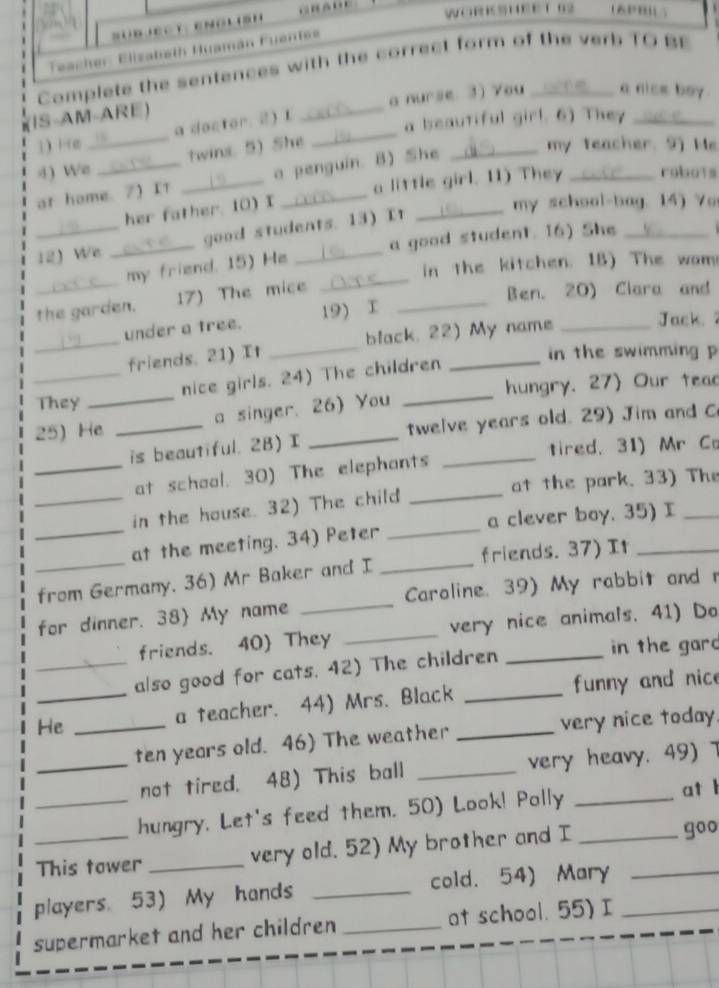 SUBJECT: ENGLISH GRADE: WORKSHEET 02 (APRIL)
Teacher: Elizabeth Huamán Fuentes
Complete the sentences with the correct form of the verb TO BE
(IS-AM-ARE)
1) He is a doctor. 2) I a nurse. 3) You are a nice boy.
4) We twins. 5) She is a beautiful girl. 6) They
at home. 7) It is a penguin. 8) She is my teacher. 9) He
is her father. 10) I a little girl. 11) They robots
12) We are good students. 13) It is my school-bag. 14) Yo
my friend. 15) He is a good student. 16) She
the garden. 17) The mice are in the kitchen. 18) The wom
is under a tree. 19) I Ben. 20) Clara and
friends. 21) It black. 22) My name Jack.
They nice girls. 24) The children in the swimming p
25) He a singer. 26) You hungry. 27) Our teac
is beautiful. 28) I twelve years old. 29) Jim and C
at school. 30) The elephants tired. 31) Mr Co
in the house. 32) The child at the park. 33) The
at the meeting. 34) Peter a clever boy. 35) I
from Germany. 36) Mr Baker and I friends. 37) It
for dinner. 38) My name Caroline. 39) My rabbit and
friends. 40) They very nice animals. 41) Do
also good for cats. 42) The children in the gard
He a teacher. 44) Mrs. Black funny and nice
ten years old. 46) The weather very nice today.
not tired. 48) This ball very heavy. 49)
hungry. Let's feed them. 50) Look! Polly at
This tower very old. 52) My brother and I goo
players. 53) My hands cold. 54) Mary
supermarket and her children at school. 55) I